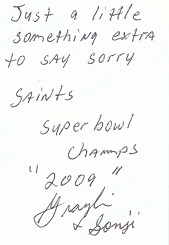 Just a little
something extra
to say sorry
SAINTS
Super bowl
Champs
"2009"
& Sonji